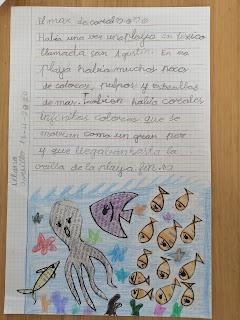 El mar de corales
Había una vez una playa en México
llamada san Agustín En esa
playa había muchos peces
de colores, pulpos y estrellas
de mar. también había corales
infinitos colores que se
movian como un gran pez
y que llegaban hasta la
orilla de la playa. fin